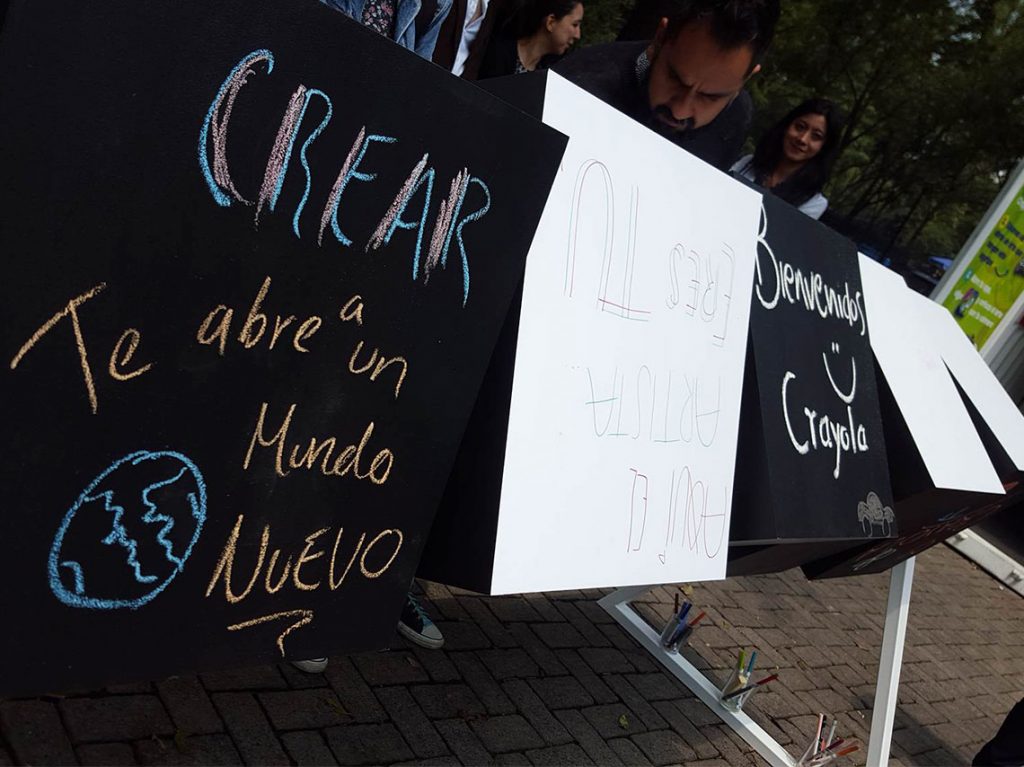 CREAR
Te abre a
un
Mundo
NUEVO
AQUÍ EL
ARTISTA...
ERES TU
Bienvenidos
Crayola